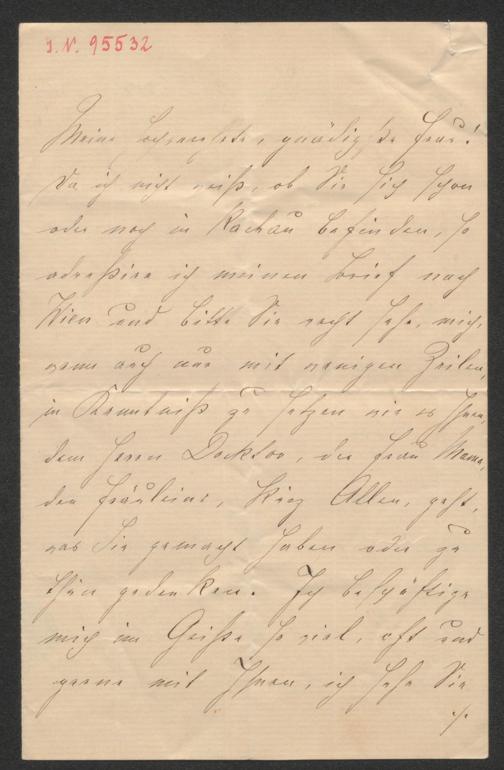 I. N. 95532
Meine hochverehrte, gnädigste Frau!
Da ich nicht weiß, ob Sie sich schon
oder noch in Kochau befinden, so
adressire ich meinen Brief nach
Wien und bitte Sie recht sehr, mich,
wenn auch nur mit wenigen Zeilen,
in Kenntniß zu setzen wie es Ihnen,
dem Herrn Docktor, der Frau Mama,
den Fräuleins, kurz Allen, geht,
was Sie gemacht haben oder zu
thun gedenken. Ich beschäftige
mich im Geiste so viel, oft und
gerne mit Ihnen, ich sehe Sie
./.